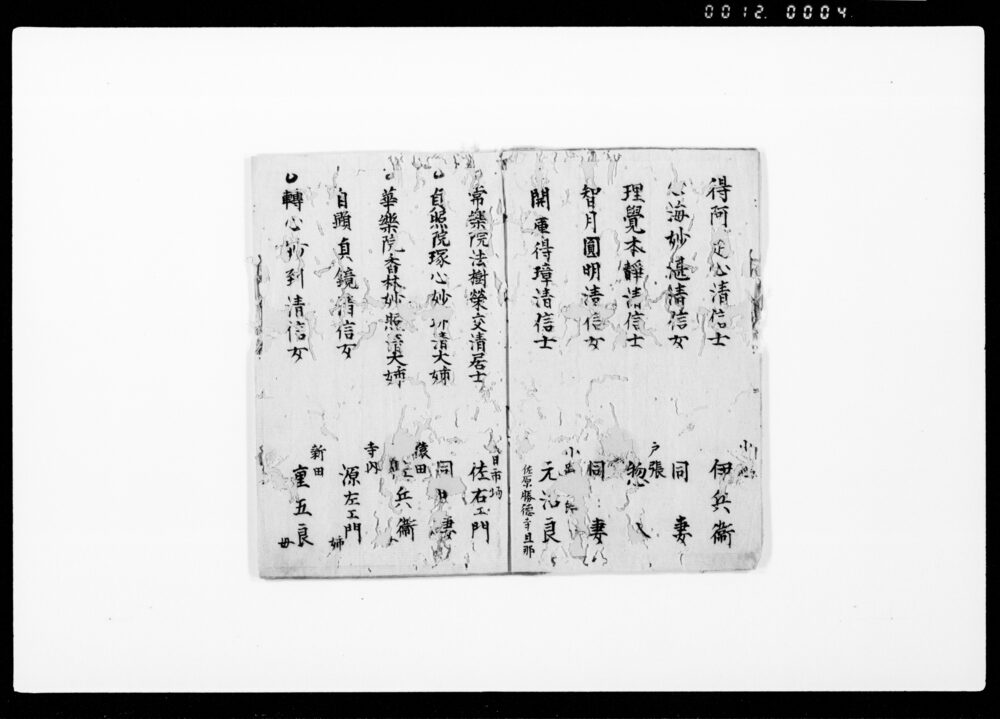 0012. 0004
得阿 心清信士
小
伊兵衛
心海妙湛清信女
同 妻
理覺本靜清信士
戸張
惣
智月圓明清信女
同 妻
開庫得璋清信士
小
元 良
佐原勝德寺旦那
常樂院法樹榮交清居士
日市場
佐右エ門
貞照院琢心妙 清大姉
同 妻
華樂院香林妙照清大姉
猿田
兵衛
自顕貞鏡清信女
寺内
源左エ門
姉
轉心妙到清信女
新田
重五良
母